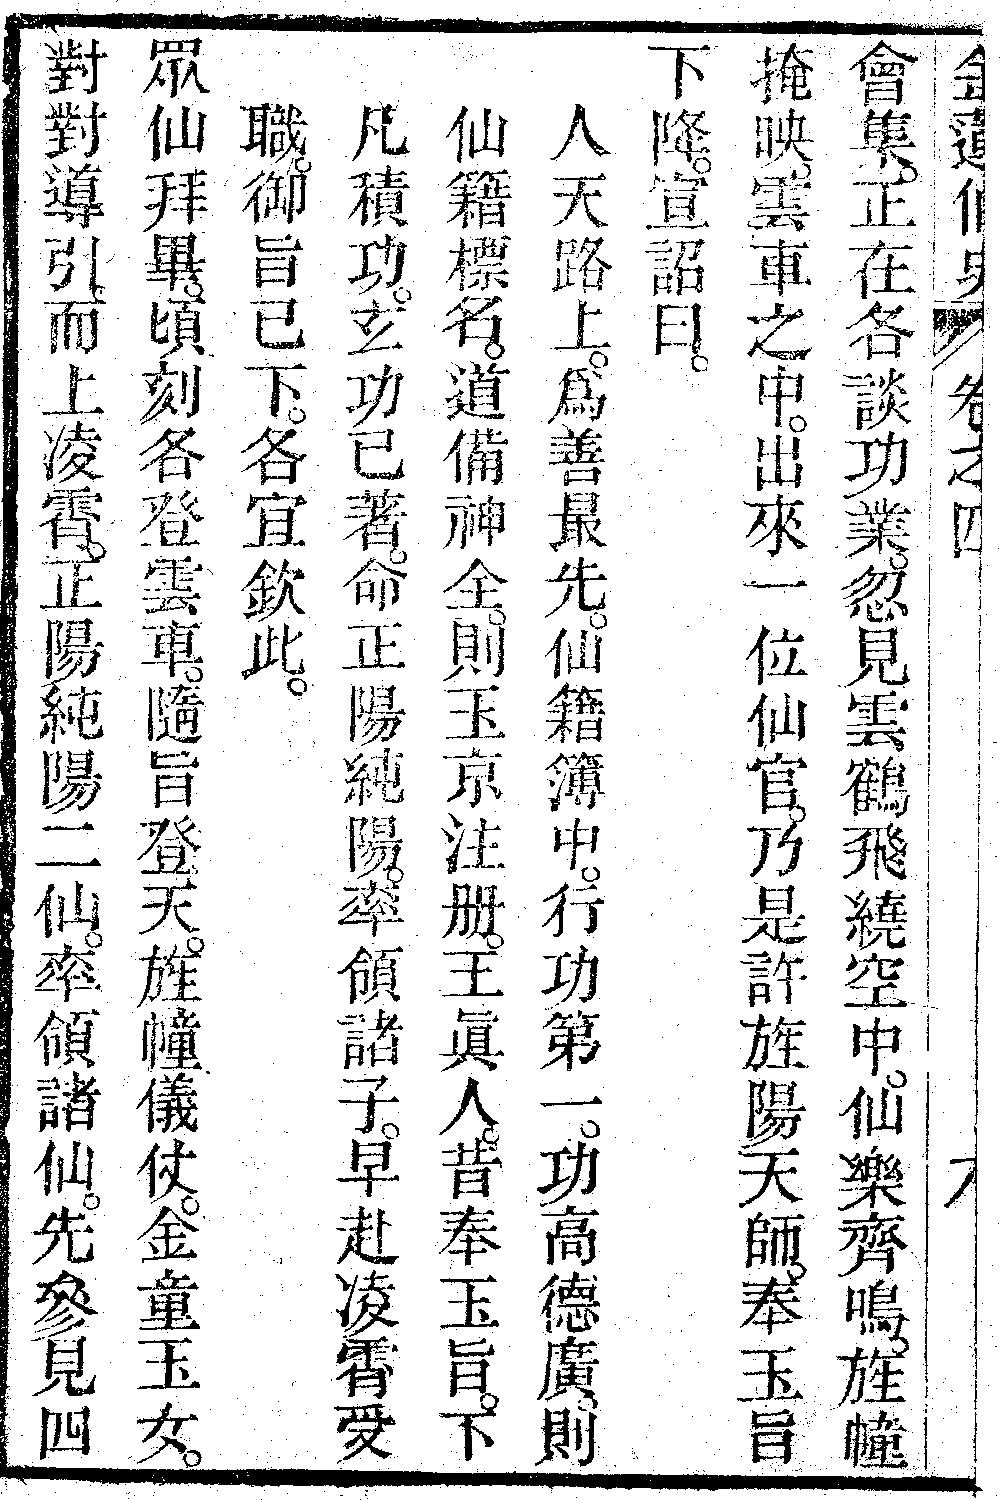 金蓮仙史 卷之四 六
會集。正在各談功業。忽見雲鶴飛繞空中。仙樂齊鳴。旌幢
掩映。雲車之中。出來一位仙官。乃是許旌陽天師。奉玉旨
下降。宣詔曰。
人天路上。爲善最先。仙籍簿中。行功第一。功高德廣。則
仙籍標名。道備神全。則玉京注册。王眞人。昔奉玉旨。下
凡積功。玄功已著。命正陽純陽。率領諸子。早赴凌霄受
職。御旨已下。各宜欽此。
眾仙拜畢。頃刻各登雲車。隨旨登天。旌幢儀仗。金童玉女。
對對導引。而上凌霄。正陽純陽二仙。率領諸仙。先參見四